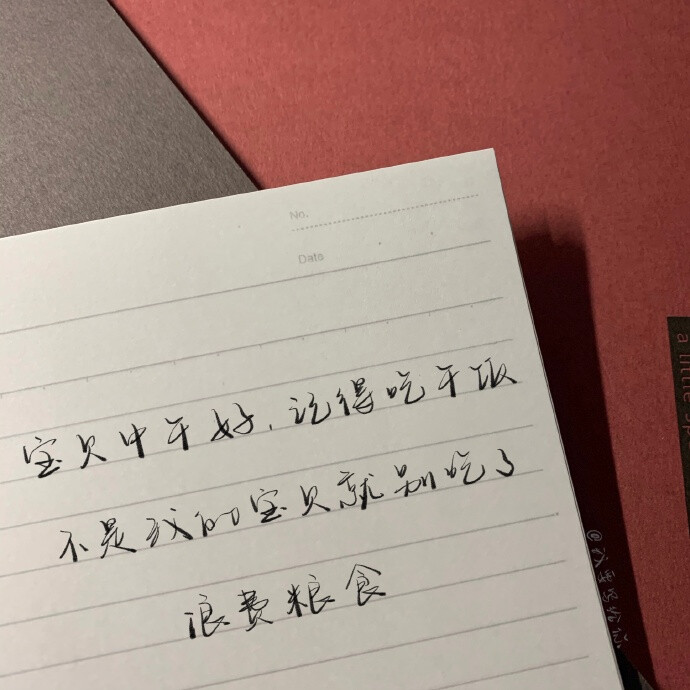 No.
Date
宝贝中午好，记得吃午饭
不是我的宝贝就别吃了
浪费粮食
a little